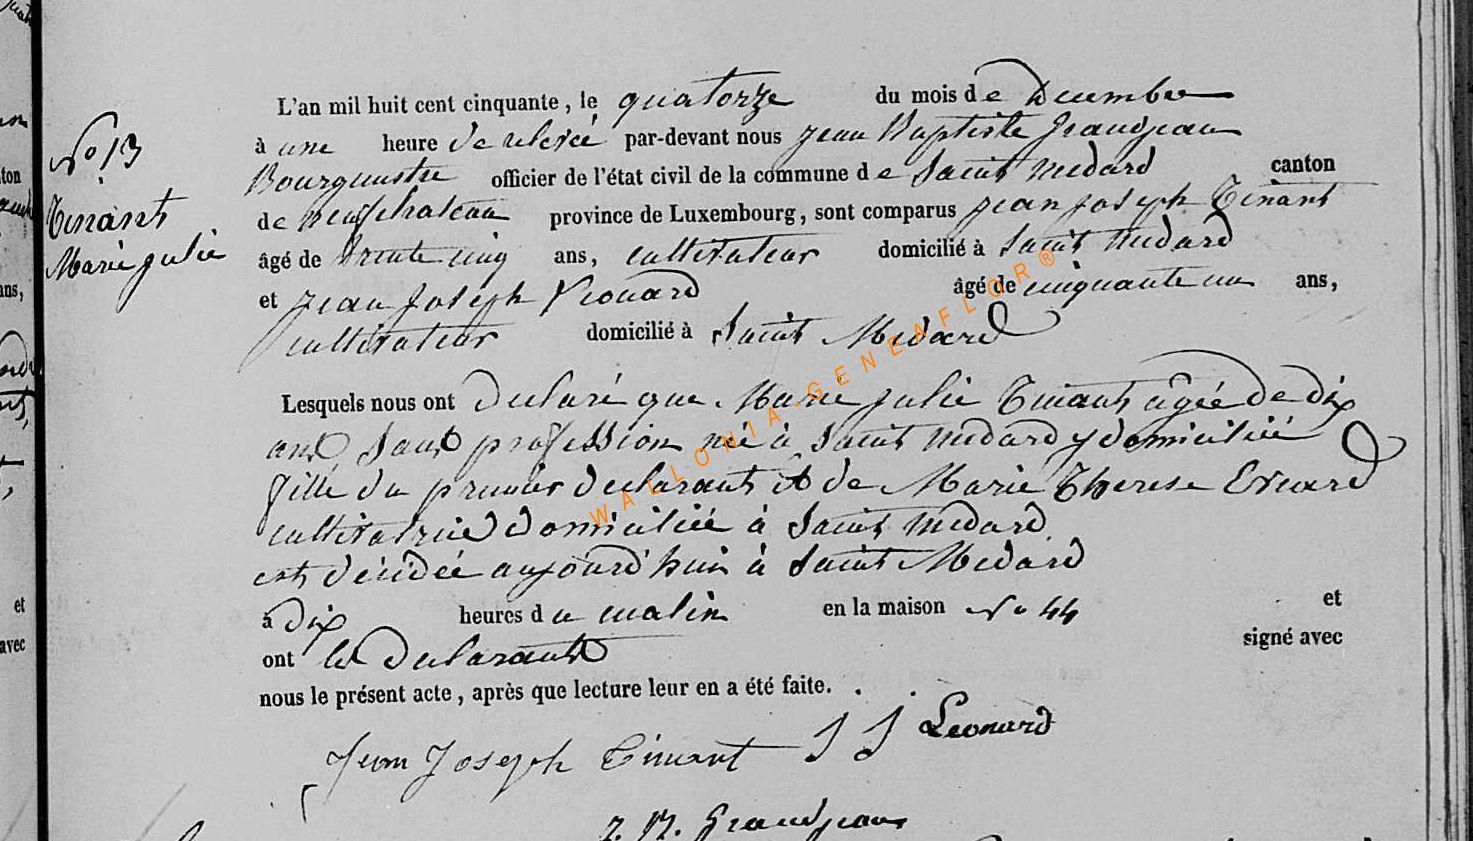 L'an mil huit cent cinquante, le quatorze du mois de Decembre
à une heure de relevé par-devant nous Jean Baptiste Grandjean
Bourgmestre officier de l'état civil de la commune de Saint Medard canton
de neufchateau province de Luxembourg, sont comparus Jean Joseph Tinant
âgé de trente cinq ans, cultivateur domicilié à Saint Medard
et Jean Joseph Léonard âgé de cinquante un ans,
cultivateur domicilié à Saint Medard
Lesquels nous ont declaré que Marie Julie Tinant agée de dix
ans Sans profession né à Saint Medard y domiciliée
fille du premier declarant et de Marie Therese Evrard
cultivatrice domiciliée à Saint Medard
est décédée aujourd'huis à Saint Medard
à dix heures du matin en la maison No 44 et
ont les declarants signé avec
nous le présent acte, après que lecture leur en a été faite.
Jean Joseph Tinant J J Leonard
J. B. Grandjean
No 13
Tinant
Marie Julie
ton
ans,
et
avec
WALLONIA GENEAFLOR®